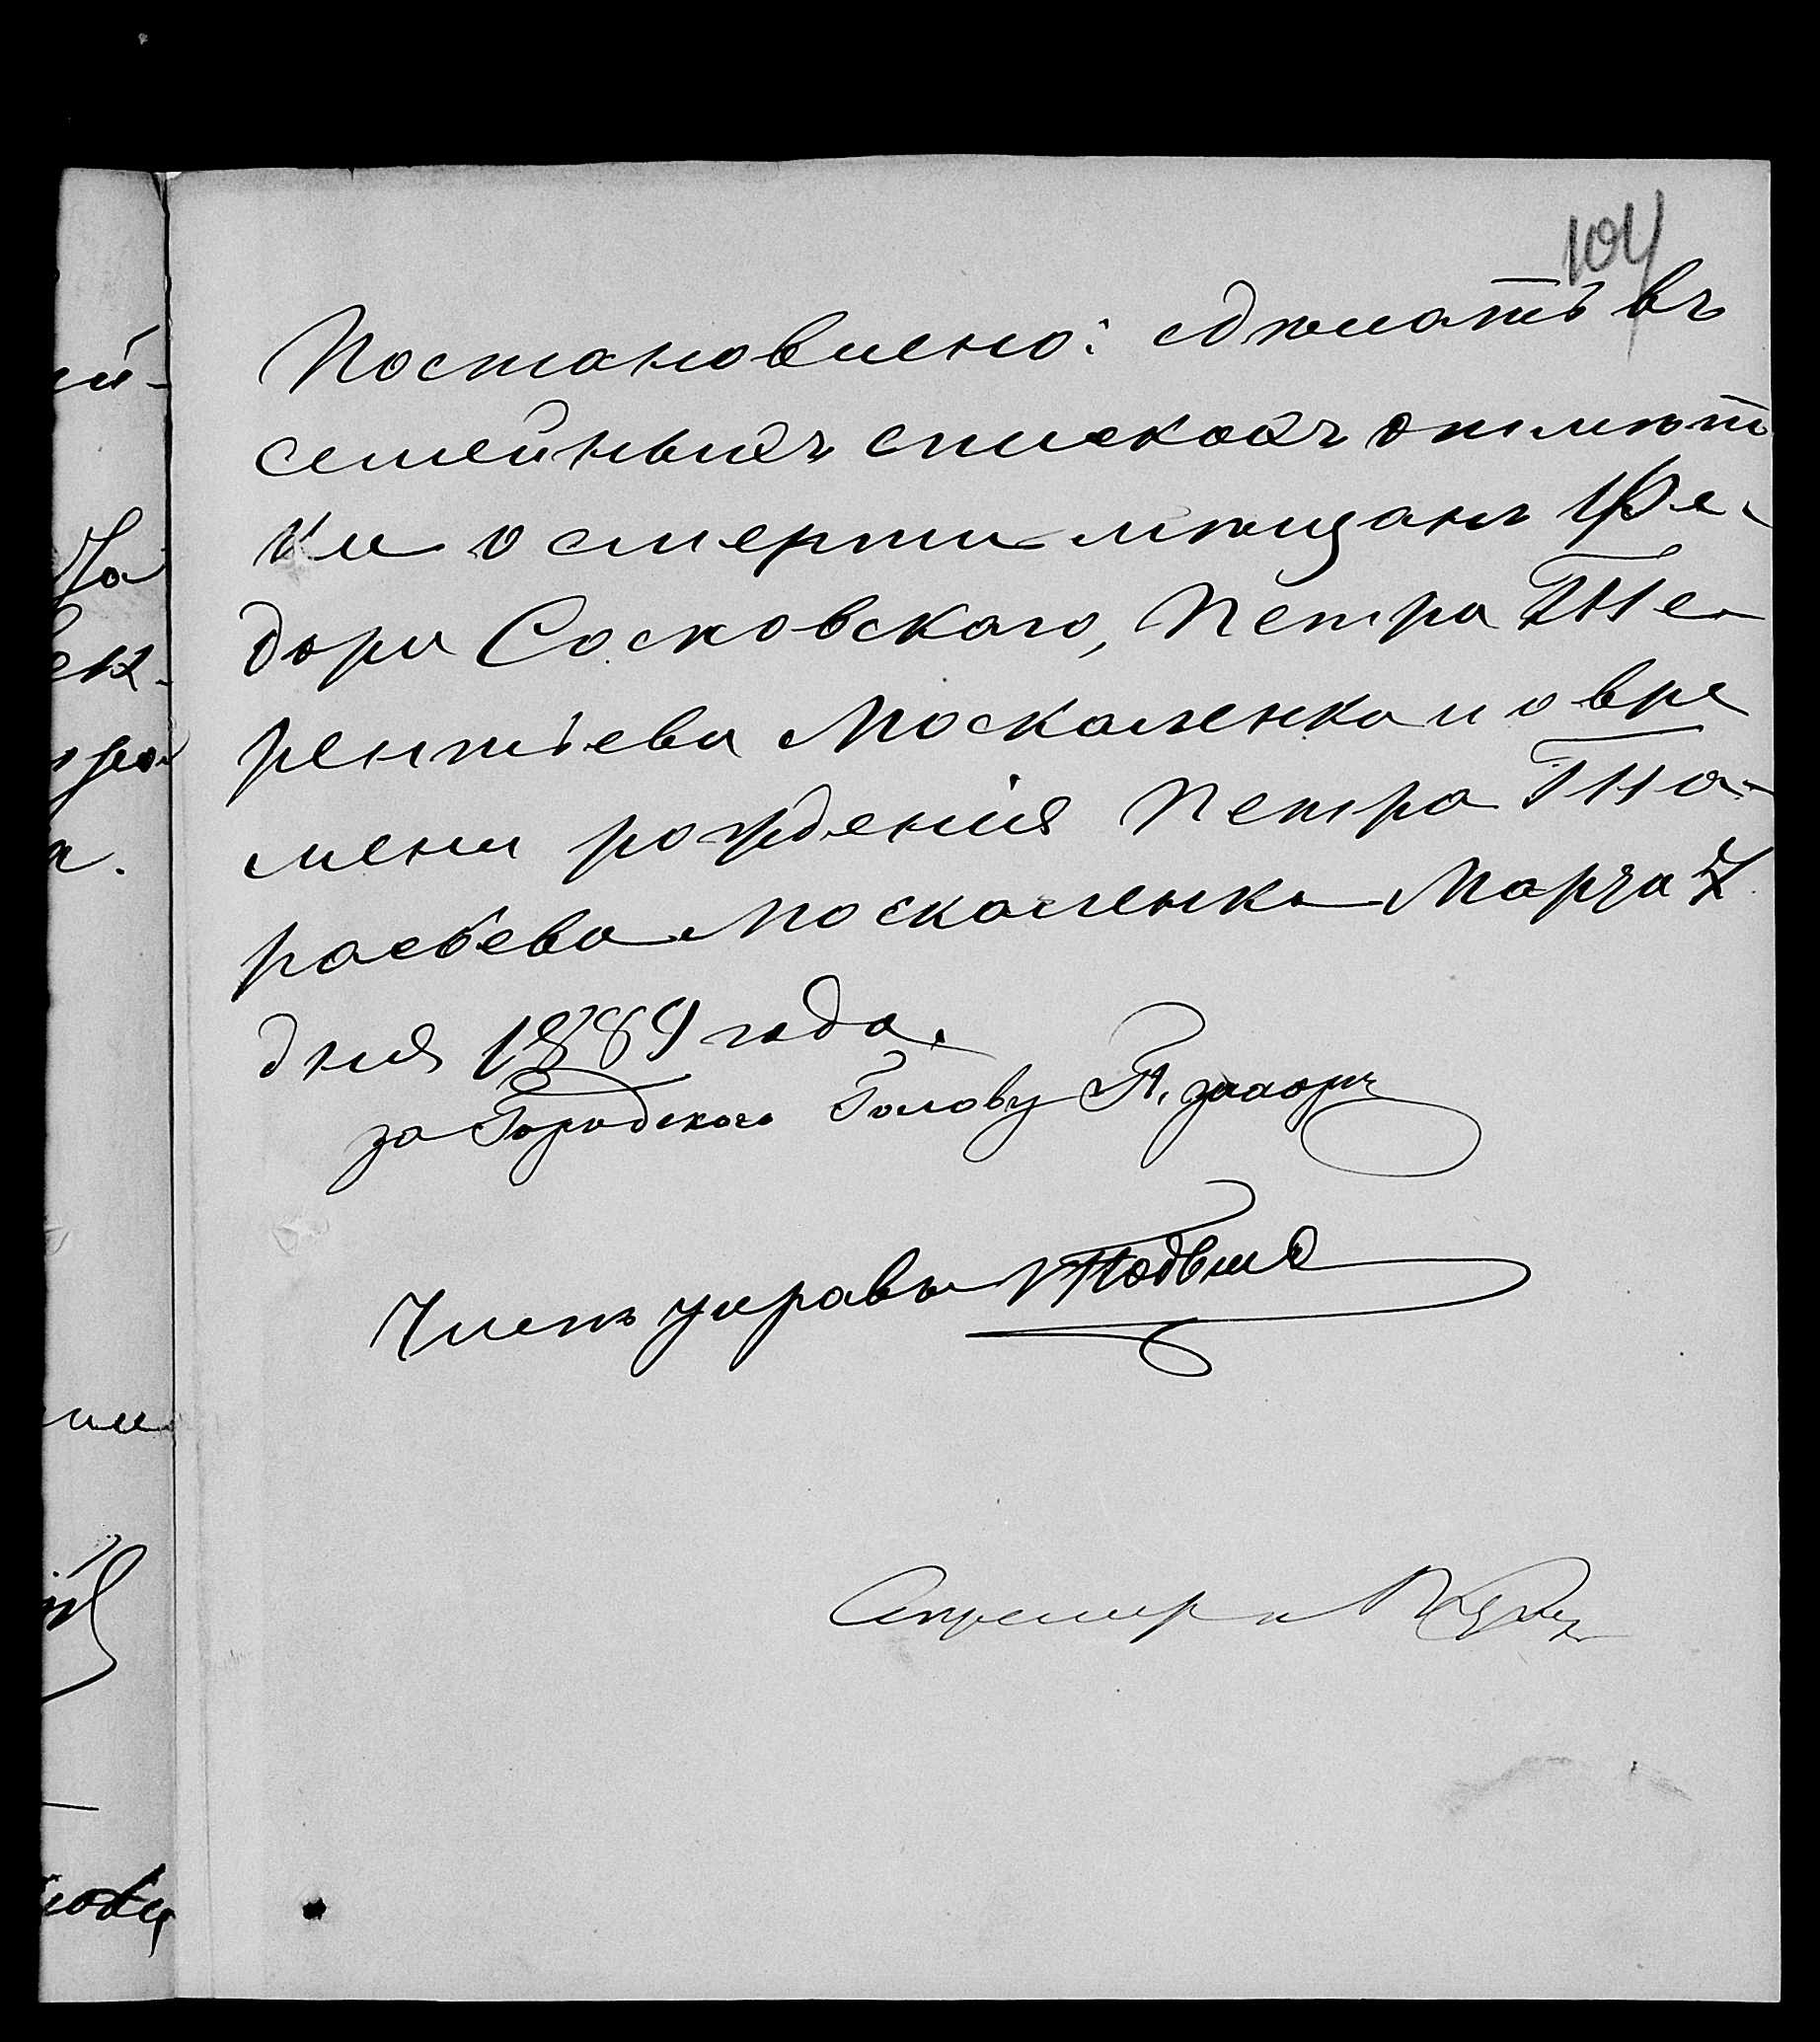 104
Постановлено: сдѣлать въ
семейныхъ спискахъ отмѣт
ки о смерти мѣщанъ Фе-
дора Сосновскаго, Петра Те-
рентьева Москаленка и о вре
мени рожденія Петра Та-
расьева Москаленка Марта 7
дня 1889 года.
за Городского Голову
Членъ управы
Секретарь